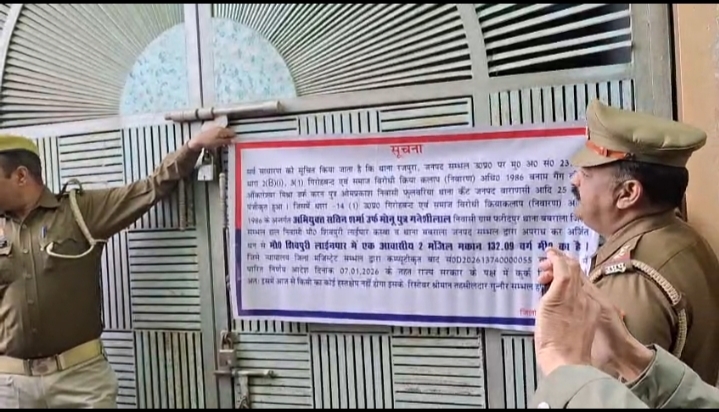 सूचना
सर्व साधारण को सूचित किया जाता है कि थाना रजपुरा, जनपद सम्भल उ0प्र0 पर मु0 अ0 सं0 23
धारा 2(B)(i), 3(1) गिरोहबन्द एवं समाज विरोधी क्रिया कलाप (निवारण) अधि0 1986 बनाम गैंग
ओंकारेश्वर मिश्रा उर्फ करन पुत्र ओमप्रकाश निवासी फुलवरिया थाना कैंट जनपद वाराणसी आदि 25
पंजीकृत हुआ। जिसमें धारा -14 (1) गिरोहबन्द एवं समाज विरोधी क्रियाकलाप (निवारण)
1986 के अन्तर्गत अभियुक्त सचिन शर्मा उर्फ मोनू पुत्र गनेशीलाल निवासी ग्राम फरीदपुर थाना बबराला
सम्भल हाल निवासी मौ0 शिवपुरी लाईपार कस्बा व थाना बबराला जनपद सम्भल द्वारा अपराध कर अर्जित
धन से मौ0 शिवपुरी लाईनपार में एक आवासीय 2 मंजिल मकान 132.09 वर्ग मी0 का है।
जिसे न्यायालय जिला मजिस्ट्रेट सम्भल द्वारा कम्प्यूटीकृत वाद सं0D202613740000055
पारित निर्णय आदेश दिनांक 07.01.2026 के तहत राज्य सरकार के पक्ष में कुर्क
अतः इसमें आज से किसी का कोई हस्तक्षेप नहीं होगा इसके रिसीवर श्रीमान तहसीलदार गुन्नौर सम्भल